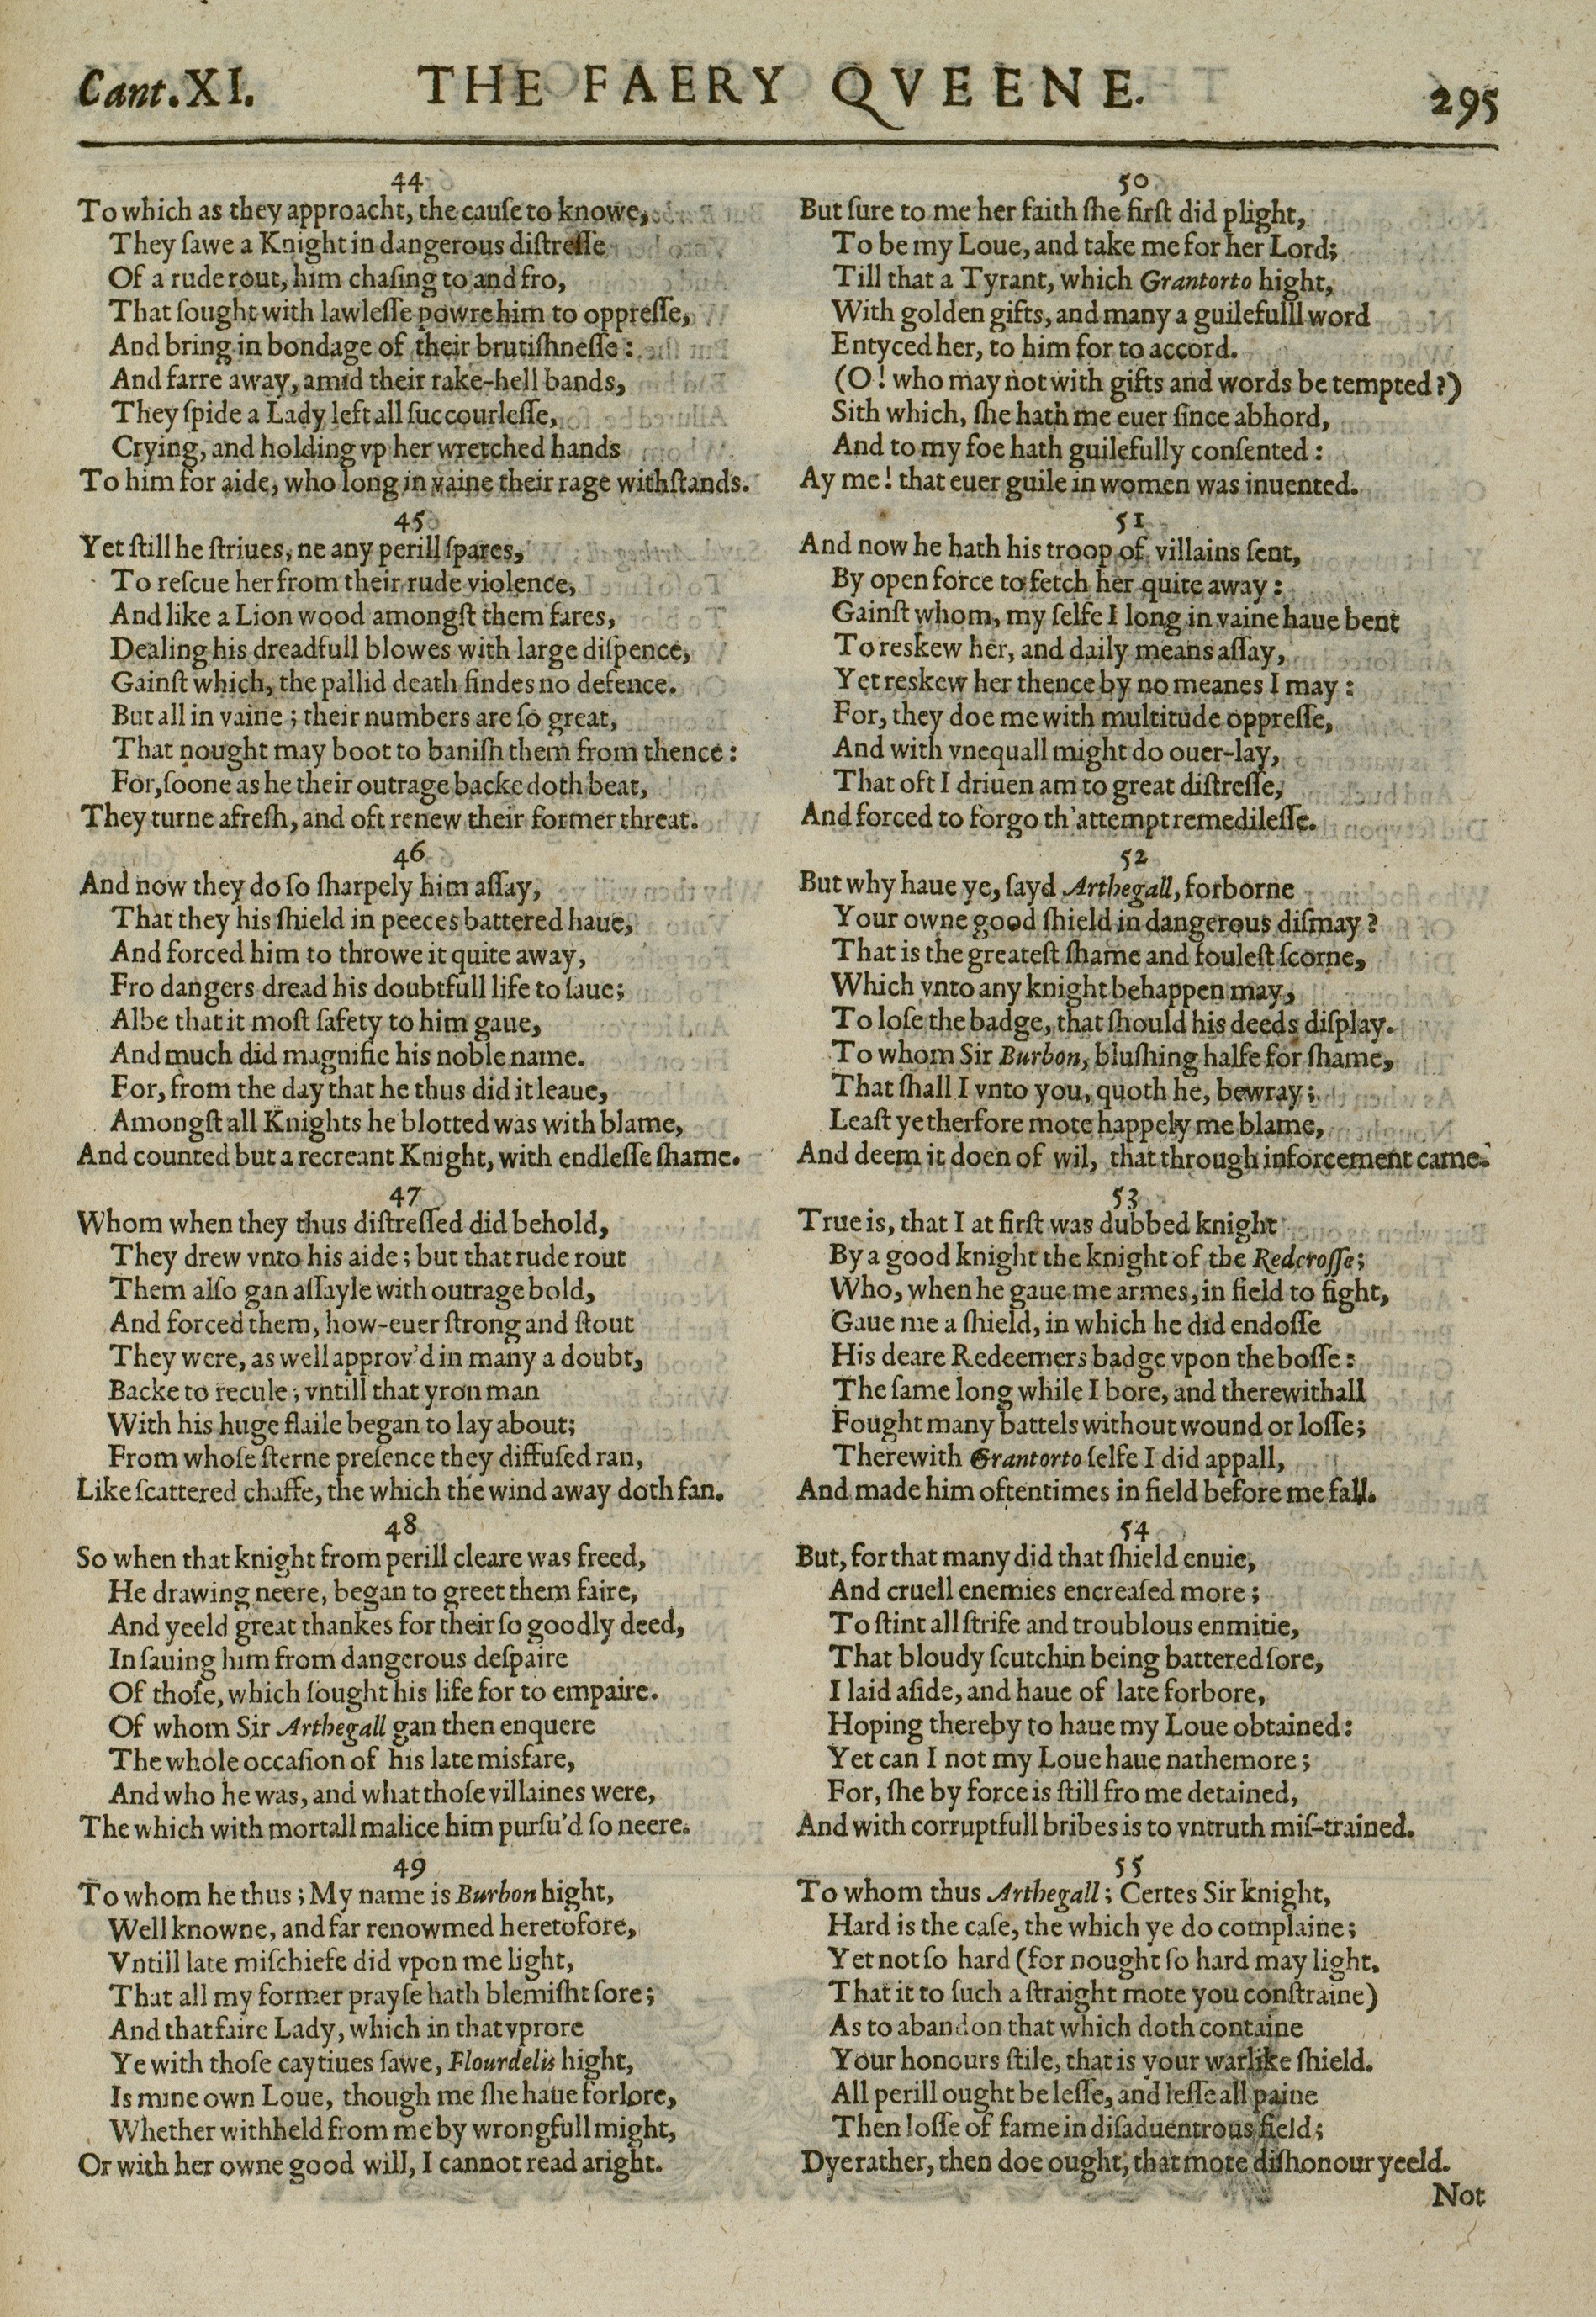 Cant.XI. THE FAERY QVEENE. 295
44
To which as they approacht, the cauſe to knowe,
They ſawe a Knight in dangerous diſtreſſe
Of a rude rout, him chaſing to and fro,
That ſought with lawleſſe powre him to oppreſſe,
And bring in bondage of their brutiſhneſſe :
And farre away, amid their rake-hell bands,
They ſpide a Lady left all ſuccourleſſe,
Crying, and holding vp her wretched hands
To him for aide, who long in vaine their rage withſtands.
45
Yet ſtill he ſtriues, ne any perill ſpares,
To reſcue her from their rude violence,
And like a Lion wood amongſt them fares,
Dealing his dreadfull blowes with large diſpence,
Gainſt which, the pallid death findes no defence.
But all in vaine ; their numbers are ſo great,
That nought may boot to baniſh them from thence :
For, ſoone as he their outrage backe doth beat,
They turne afreſh, and oft renew their former threat.
46
And now they do ſo ſharpely him aſſay,
That they his ſhield in peeces battered haue,
And forced him to throwe it quite away,
Fro dangers dread his doubtfull life to ſaue;
Albe that it moſt ſafety to him gaue,
And much did magnifie his noble name.
For, from the day that he thus did it leaue,
Amongſt all Knights he blotted was with blame,
And counted but a recreant Knight, with endleſſe ſhame.
47
Whom when they thus diſtreſſed did behold,
They drew vnto his aide ; but that rude rout
Them alſo gan aſſayle with outrage bold,
And forced them, how-euer ſtrong and ſtout
They were, as well approv'd in many a doubt,
Backe to recule ; vntill that yron man
With his huge flaile began to lay about;
From whoſe ſterne preſence they diffuſed ran,
Like ſcattered chaffe, the which the wind away doth fan.
48
So when that knight from perill cleare was freed,
He drawing neere, began to greet them faire,
And yeeld great thankes for their ſo goodly deed,
In ſauing him from dangerous deſpaire
Of thoſe, which ſought his life for to empaire.
Of whom Sir Arthegall gan then enquere
The whole occaſion of his late misfare,
And who he was, and what thoſe villaines were,
The which with mortall malice him purſu'd ſo neere.
49
To whom he thus ; My name is Burbon hight,
Well knowne, and far renowmed heretofore,
Vntill late miſchiefe did vpon me light,
That all my former prayſe hath blemiſht ſore ;
And that faire Lady, which in that vprore
Ye with thoſe caytiues ſawe, Flourdelis hight,
Is mine own Loue, though me ſhe haue forlore,
Whether withheld from me by wrongfull might,
Or with her owne good will, I cannot read aright.
50
But ſure to me her faith ſhe firſt did plight,
To be my Loue, and take me for her Lord;
Till that a Tyrant, which Grantorto hight,
With golden gifts, and many a guilefulll word
Entyced her, to him for to accord.
(O ! who may not with gifts and words be tempted ?)
Sith which, ſhe hath me euer ſince abhord,
And to my foe hath guilefully conſented :
Ay me ! that euer guile in women was inuented.
51
And now he hath his troop of villains ſent,
By open force to fetch her quite away :
Gainſt whom, my ſelfe I long in vaine haue bent
To reskew her, and daily means aſſay,
Yet reskew her thence by no meanes I may :
For, they doe me with multitude oppreſſe,
And with vnequall might do ouer-lay,
That oft I driuen am to great diſtreſſe,
And forced to forgo th'attempt remedileſſe.
52
But why haue ye, ſayd Arthegall, forborne
Your owne good ſhield in dangerous diſmay ?
That is the greateſt ſhame and fouleſt ſcorne,
Which vnto any knight behappen may,
To loſe the badge, that ſhould his deeds diſplay.
To whom Sir Burbon, bluſhing halfe for ſhame,
That ſhall I vnto you, quoth he, bewray ;
Leaſt ye therfore mote happely me blame,
And deem it doen of wil, that through inforcement came.
53
True is, that I at firſt was dubbed knight
By a good knight the knight of the Redcroſſe;
Who, when he gaue me armes, in field to fight,
Gaue me a ſhield, in which he did endoſſe
His deare Redeemers badge vpon the boſſe :
The ſame long while I bore, and therewithall
Fought many battels without wound or loſſe ;
Therewith Grantorto ſelfe I did appall,
And made him oftentimes in field before me fall.
54
But, for that many did that ſhield enuie,
And cruell enemies encreaſed more ;
To ſtint all ſtrife and troublous enmitie,
That bloudy ſcutchin being battered ſore,
I laid aſide, and haue of late forbore,
Hoping thereby to haue my Loue obtained :
Yet can I not my Loue haue nathemore ;
For, ſhe by force is ſtill fro me detained,
And with corruptfull bribes is to vntruth miſ-trained.
55
To whom thus Arthegall ; Certes Sir knight,
Hard is the caſe, the which ye do complaine ;
Yet not ſo hard (for nought ſo hard may light.
That it to ſuch a ſtraight mote you conſtraine)
As to abandon that which doth containe
Your honours ſtile, that is your warlike ſhield.
All perill ought be leſſe, and leſſe all paine
Then loſſe of fame in diſaduentrous field ;
Dye rather, then doe ought, that mote diſhonour yeeld.
Not